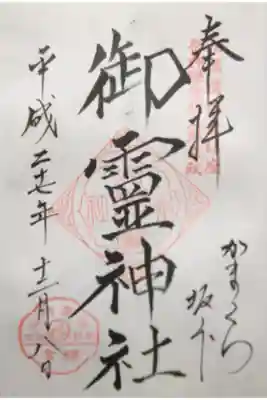 奉拝
かまくら
坂ノ下
御靈神社
平成二十七年 十二月八日